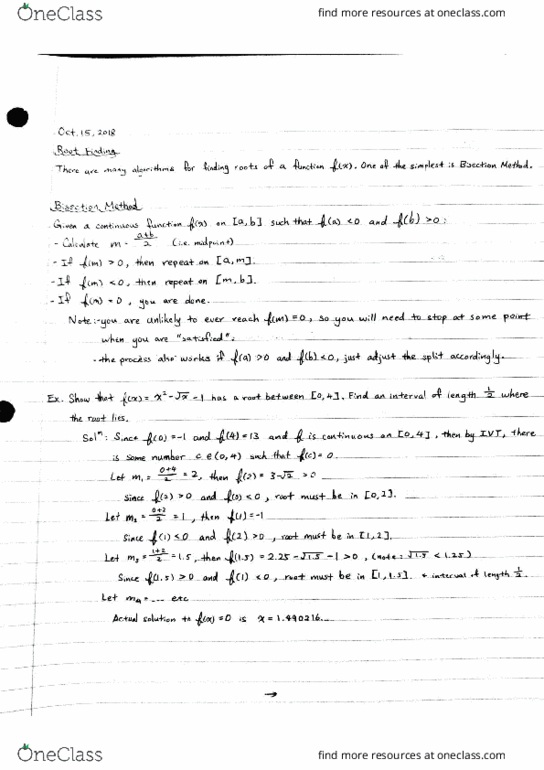 OneClass
find more resources at oneclass.com
Oct. 15, 2018
Root Finding
There are many algorithms for finding roots of a function f(x). One of the simplest is Bisection Method.
Bisection Method
Given a continuous function f(x) on [a,b] such that f(a) <0 and f(b) >0:
- Calculate m = (a+b)/2 (i.e. midpoint)
- If f(m) > 0, then repeat on [a,m].
- If f(m) < 0, then repeat on [m,b].
- If f(m) = 0, you are done.
Note: - you are unlikely to ever reach f(m)=0, so you will need to stop at some point
when you are "satisfied".
- the process also works if f(a) >0 and f(b)<0, just adjust the split accordingly.
Ex. Show that f(x) = x² - √x - 1 has a root between [0,4]. Find an interval of length 1/2 where
the root lies.
Solⁿ: Since f(0)=-1 and f(4)=13 and f is continuous on [0,4], then by IVT, there
is some number c ∈ (0,4) such that f(c)=0.
Let m₁ = (0+4)/2 = 2, then f(2) = 3-√2 >0
Since f(2) >0 and f(0) <0, root must be in [0,2].
Let m₂ = (0+2)/2 = 1, then f(1)=-1
Since f(1) <0 and f(2) >0, root must be in [1,2].
Let m₃ = (1+2)/2 = 1.5, then f(1.5) = 2.25 - √1.5 - 1 >0, (note: √1.5 < 1.25)
Since f(1.5) >0 and f(1) <0, root must be in [1,1.5]. interval of length 1/2.
Let m₄ = ... etc
Actual solution to f(x)=0 is x = 1.490216...
→
OneClass
find more resources at oneclass.com